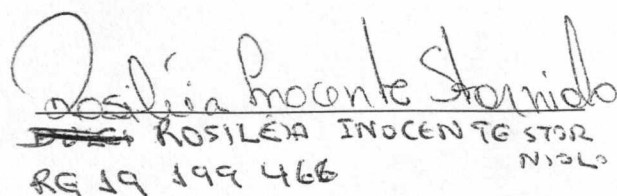 Rosiléia Inocente Storniolo
ROSILÉIA INOCENTE STOR
NIOLO
RG 19 199 466